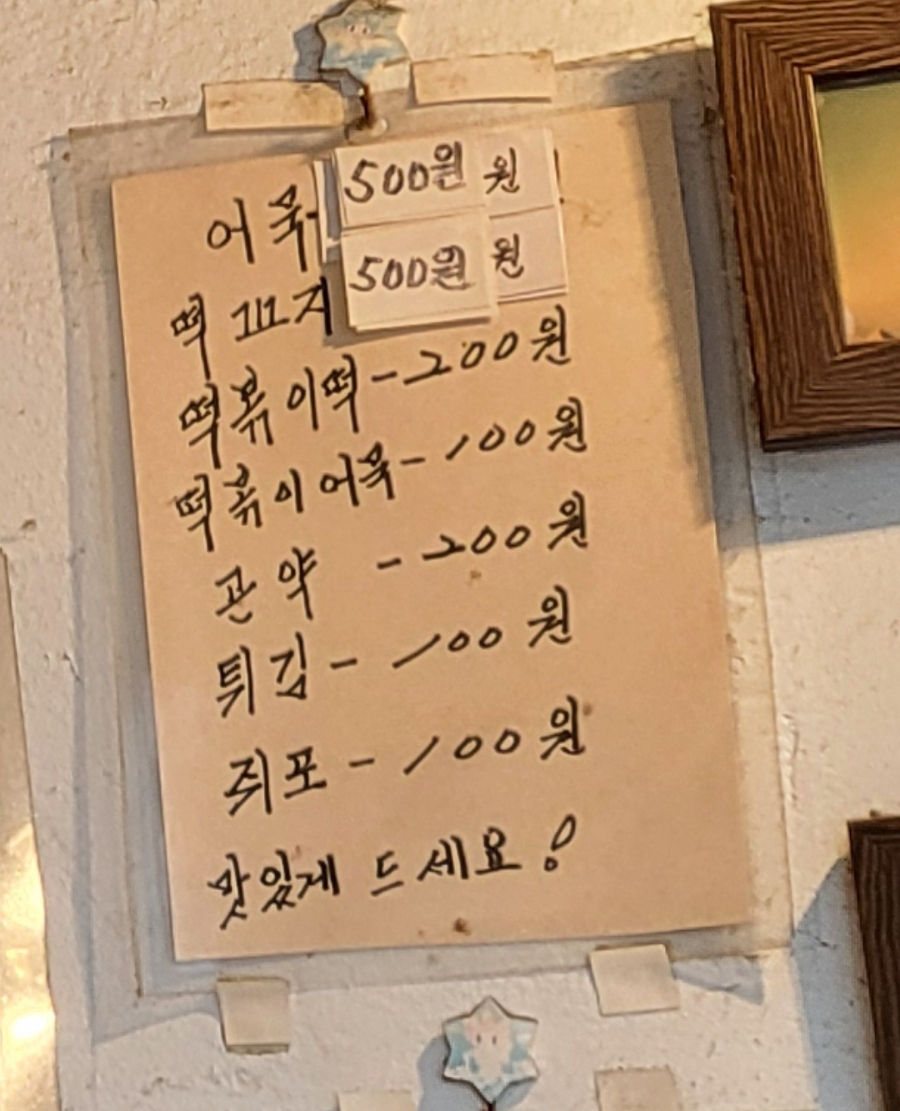 어묵 500원 원
떡꼬지 500원 원
떡볶이떡-200원
떡볶이어묵-100원
곤약 -200원
튀김- 100원
쥐포-100원
맛있게 드세요!